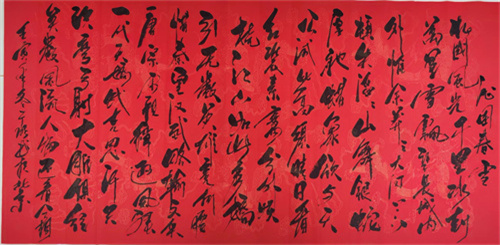 沁园春雪
北国风光千里冰封
万里雪飘望长城内
外惟余莽莽大河上下
顿失滔滔山舞银蛇
原驰蜡象欲与天
公试比高须晴日看
红装素裹分外妖
娆江山如此多娇
引无数英雄竞折腰
惜秦皇汉武略输文采
唐宗宋祖稍逊风骚
一代天骄成吉思汗只
识弯弓射大雕俱往
矣数风流人物还看今朝